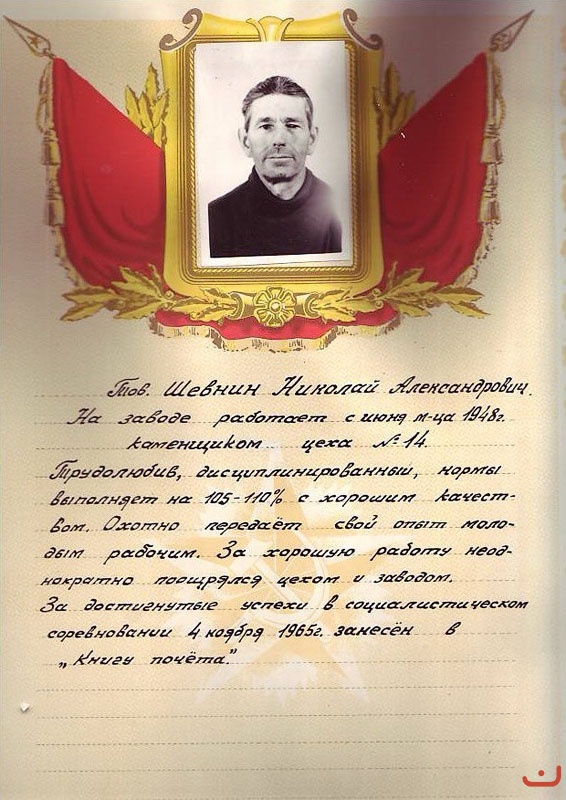 Тов. Шевнин Николай Александрович.
На заводе работает с июня м-ца 1948г.
каменщиком цеха №14.
Трудолюбив, дисциплинированный, нормы
выполняет на 105-110% с хорошим качест-
вом. Охотно передаёт свой опыт моло-
дым рабочим. За хорошую работу неод-
нократно поощрялся цехом и заводом.
За достигнутые успехи в социалистическом
соревновании 4 ноября 1965г. занесён в
„Книгу почёта".